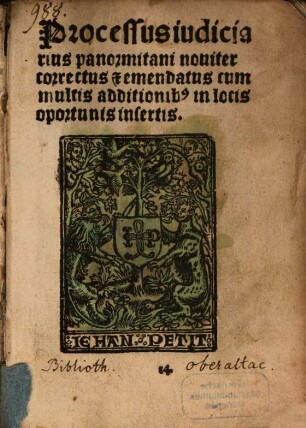 988.
Processus iudicia
rius panormitani noviter
correctus & emendatus cum
multis additionibꝰ in locis
oportunis insertis.
IEHAN PETIT
Biblioth. 14. oberaltac.